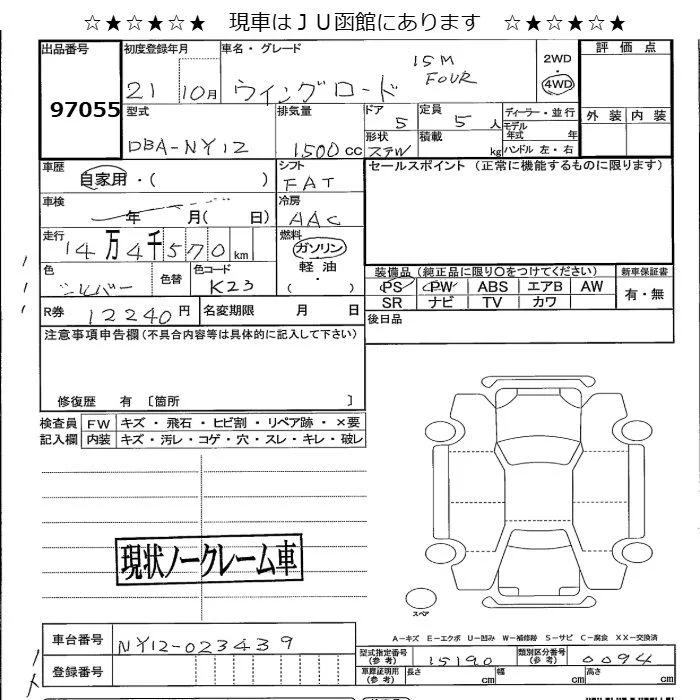 ☆★☆★☆★ 現車はJU函館にあります ☆★☆★☆★
出品番号 97055
初度登録年月 21 10月
車名・グレード ウイングロード 15M FOUR
2WD 4WD
評価点
外装 内装
型式 DBA-NY12
排気量 1500cc
ドア 5
定員 5人
形状 STW
積載 kg
ディーラー・並行
モデル年式 年
ハンドル 左・右
車歴 自家用・( )
シフト FAT
車検 年 月( 日)
冷房 AAC
走行 14万4千570km
燃料 ガソリン・軽油・( )
色 シルバー
色替
色コード K23
R券 12240円
名変期限 月 日
セールスポイント(正常に機能するものに限ります)
装備品(純正品に限り○をつけてください)
新車保証書
PS PW ABS エアB AW
有・無
SR ナビ TV カワ
後日品
注意事項申告欄(不具合内容等は具体的に記入して下さい)
修復歴 有 〔箇所 〕
検査員記入欄
FW キズ・飛石・ヒビ割・リペア跡・×要
内装 キズ・汚レ・コゲ・穴・スレ・キレ・破レ
現状ノークレーム車
スペア
A-キズ E-エクボ U-凹み W-補修跡 S-サビ C-腐食 XX-交換済
車台番号 NY12-023439
登録番号
型式指定番号(参考) 15190
類別区分番号(参考) 0094
車庫証明用(参考) 長さ cm 幅 cm 高さ cm